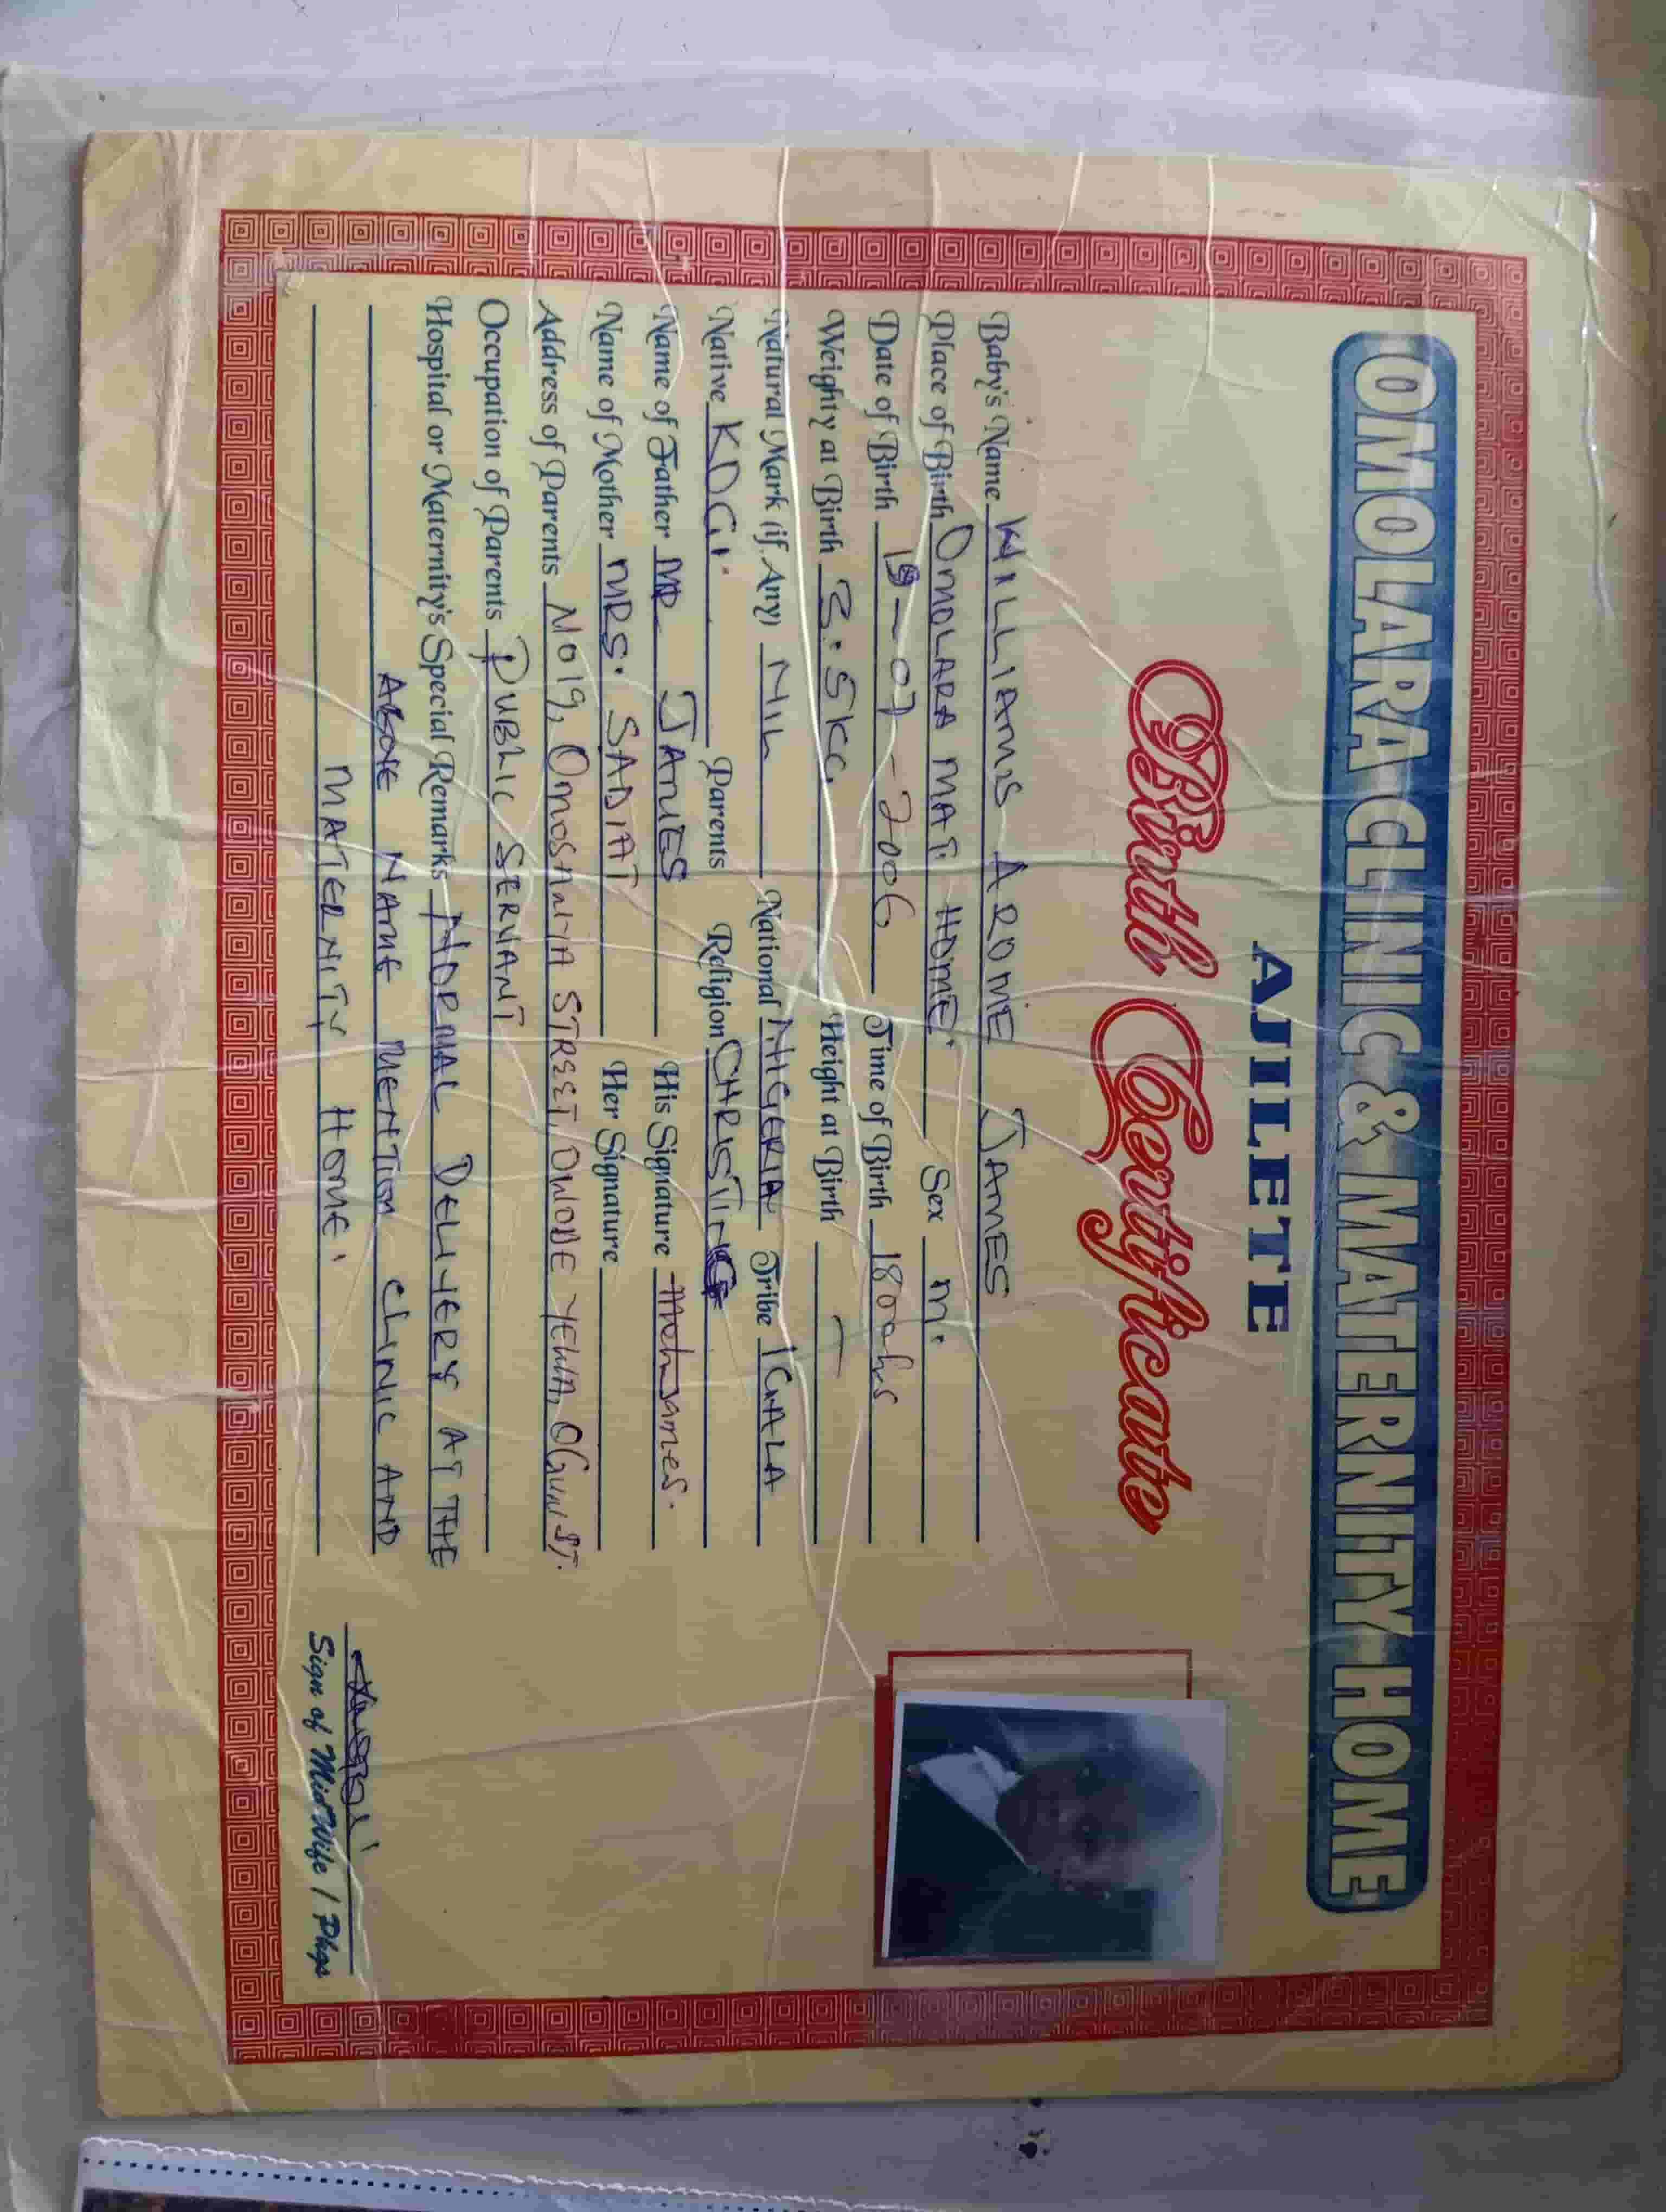 OMOLARA CLINIC & MATERNITY HOME
AJILETE
Birth Certificate
Baby's Name WILLIAMS AROME JAMES
Place of Birth OMOLARA MAT. HOME. Sex M.
Date of Birth -07-2006 Time of Birth 1800hrs
Weighty at Birth 3.5KG. Height at Birth —
Natural Mark (if Any) NIL National NIGERIA Tribe IGALA
Native KOGI. Parents Religion
Name of Father MR JAMES His Signature
Name of Mother MRS. SADIAT Her Signature
Address of Parents No 19, STREET, OWODE YEWA, OGUN ST.
Occupation of Parents PUBLIC SERVANT
Hospital or Maternity's Special Remarks NORMAL DELIVERY AT THE
ABOVE NAME MENTION CLINIC AND
MATERNITY HOME.
Sign of MidWife / Phgs